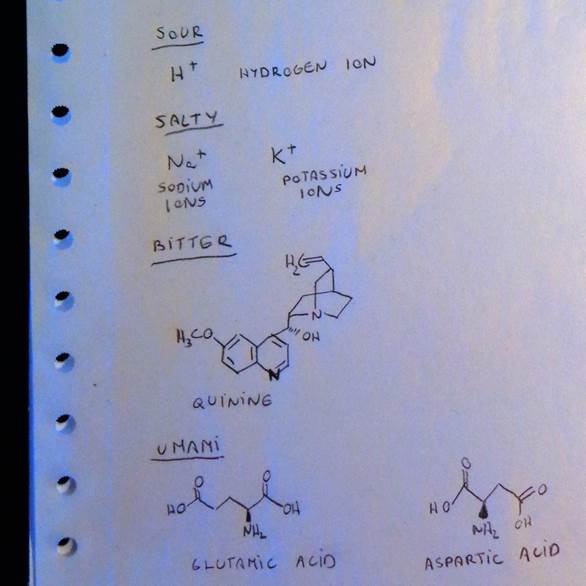 SOUR
H+ HYDROGEN ION
SALTY
Na+ K+
SODIUM IONS POTASSIUM IONS
BITTER
H2C
N
H3CO OH
N
QUININE
UMAMI
O O O
HO OH HO O
NH2 NH2 OH
GLUTAMIC ACID ASPARTIC ACID